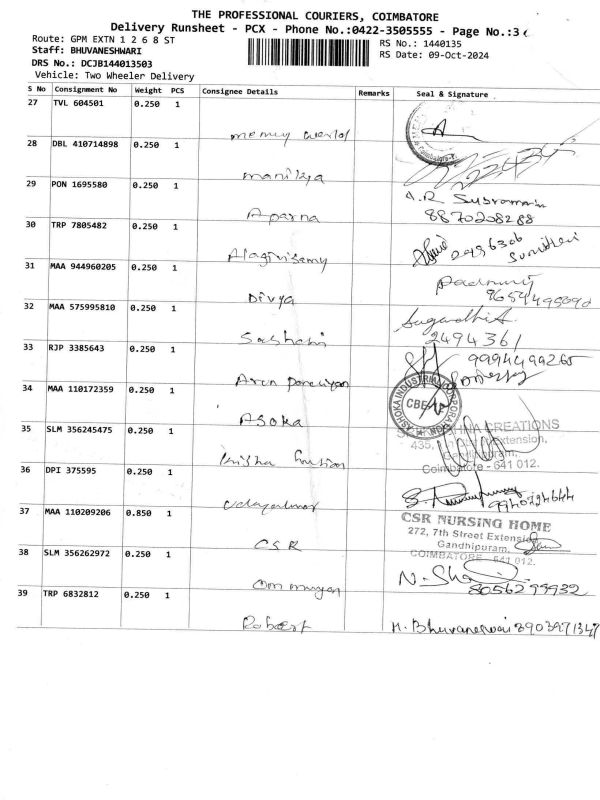 THE PROFESSIONAL COURIERS, COIMBATORE
Delivery Runsheet - PCX - Phone No.:0422-3505555 - Page No.:3
Route: GPM EXTN 1 2 6 8 ST
RS No.: 1440135
Staff: BHUVANESHWARI
RS Date: 09-Oct-2024
DRS No.: DCJB144013503
Vehicle: Two Wheeler Delivery
S No Consignment No Weight PCS Consignee Details Remarks Seal & Signature
27 TVL 604501 0.250 1
28 DBL 410714898 0.250 1
Manikya
29 PON 1695580 0.250 1
A.R Subramani
Aparna
8870208288
30 TRP 7805482 0.250 1
2496306
Alagirisamy
31 MAA 944960205 0.250 1
Divya
32 MAA 575995810 0.250 1
2494361
33 RJP 3385643 0.250 1
9994499265
34 MAA 110172359 0.250 1
ASOKA INDUSTRIAL CORPORATION
CBE
Asoka
CREATIONS
35 SLM 356245475 0.250 1
435, Extension,
Gandhipuram,
Krishna
Coimbatore - 641 012.
36 DPI 375595 0.250 1
9940724644
37 MAA 110209206 0.850 1
CSR NURSING HOME
272, 7th Street Extension
CSR
Gandhipuram,
COIMBATORE - 641 012.
38 SLM 356262972 0.250 1
8056299932
39 TRP 6832812 0.250 1
Robert
H. Bhuvaneswari 8903971347